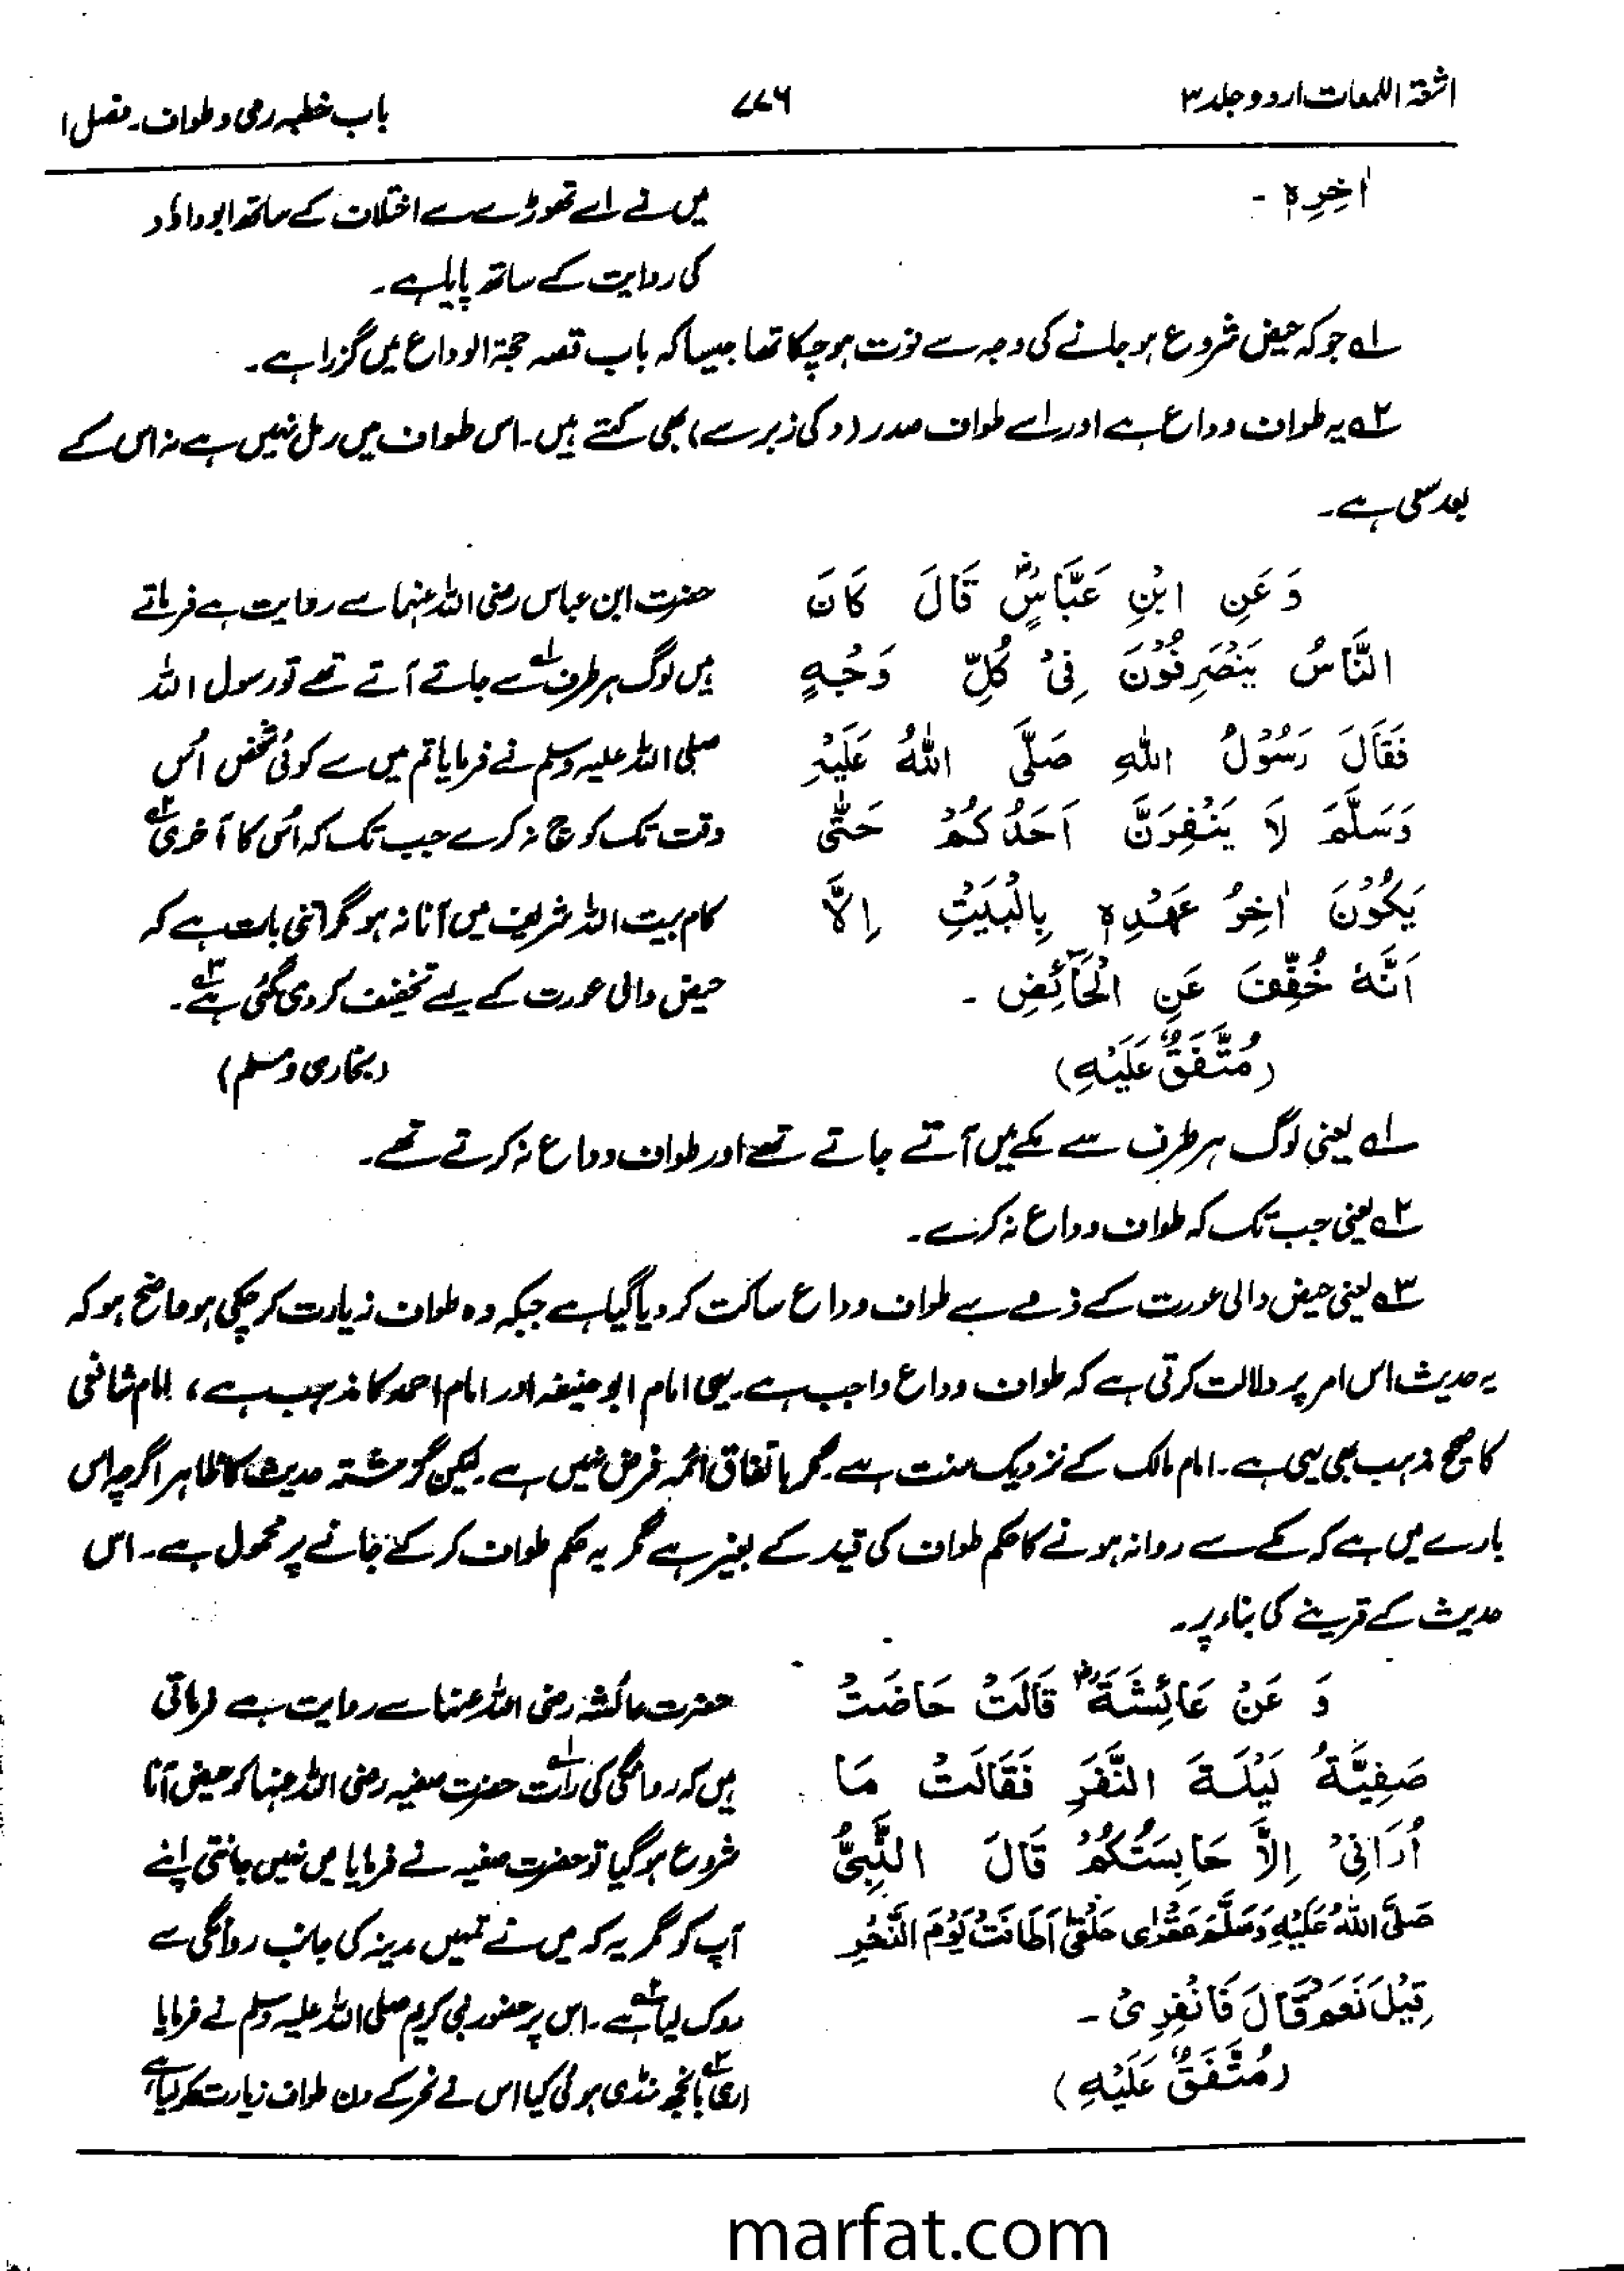 اشعۃ اللمعات اردو جلد ۳
۷۷۶
باب خطبہ رمی و طواف۔ فصل ۱
اٰخِرِہٖ ۔
میں نے اسے تھوڑے سے اختلاف کے ساتھ ابوداؤد
کی روایت کے ساتھ پایا ہے۔
۱؎ جو کہ حیض شروع ہو جانے کی وجہ سے فوت ہو چکا تھا جیسا کہ باب قصہ حجۃ الوداع میں گزرا ہے۔
۲؎ یہ طواف وداع ہے اور اسے طواف صدر (د کی زبر سے) بھی کہتے ہیں۔ اس طواف میں رمل نہیں ہے نہ اس کے
بعد سعی ہے۔
وَ عَنِ ابْنِ عَبَّاسٍؓ قَالَ كَانَ
النَّاسُ يَنْصَرِفُوْنَ فِیْ كُلِّ وَجْہٍ
فَقَالَ رَسُوْلُ اللہِ صَلَّی اللہُ عَلَیْہِ
وَسَلَّمَ لَا يَنْفِرَنَّ اَحَدُكُمْ حَتّٰی
يَكُوْنَ اٰخِرُ عَهْدِہٖ بِالْبَيْتِ اِلَّا
اَنَّہٗ خُفِّفَ عَنِ الْحَآئِضِ ۔
(مُتَّفَقٌ عَلَيْهِ)
حضرت ابن عباس رضی اللہ عنہما سے روایت ہے فرماتے
ہیں لوگ ہر طرف۱؎ سے جاتے آتے تھے تو رسول اللہ
صلی اللہ علیہ وسلم نے فرمایا تم میں سے کوئی شخص اُس
وقت تک کوچ نہ کرے جب تک کہ اُس کا آخری۲؎
کام بیت اللہ شریف میں آنا نہ ہو مگر اتنی بات ہے کہ
حیض والی عورت کے لیے تخفیف کر دی گئی ہے۳؎۔
(بخاری و مسلم)
۱؎ یعنی لوگ ہر طرف سے مکے میں آتے جاتے تھے اور طواف وداع نہ کرتے تھے۔
۲؎ یعنی جب تک کہ طواف وداع نہ کرے۔
۳؎ یعنی حیض والی عورت کے ذمے سے طواف وداع ساکت کر دیا گیا ہے جبکہ وہ طواف زیارت کر چکی ہو واضح ہو کہ
یہ حدیث اس امر پر دلالت کرتی ہے کہ طواف وداع واجب ہے۔ یہی امام ابو حنیفہ اور امام احمد کا مذہب ہے، امام شافعی
کا صحیح مذہب بھی یہی ہے۔ امام مالک کے نزدیک سنت ہے۔ مگر باتفاق ائمہ فرض نہیں ہے۔ لیکن گزشتہ حدیث کا ظاہر اگرچہ اس
بارے میں ہے کہ مکے سے روانہ ہونے کا حکم طواف کی قید کے بغیر ہے مگر یہ حکم طواف کر کے جانے پر محمول ہے۔ اس
حدیث کے قرینے کی بناء پر۔
وَ عَنْ عَائِشَةَؓ قَالَتْ حَاضَتْ
صَفِيَّةُ لَيْلَةَ النَّفَرِ فَقَالَتْ مَا
اُرَانِیْ اِلَّا حَابِسَتَكُمْ قَالَ النَّبِیُّ
صَلَّی اللہُ عَلَيْهِ وَسَلَّمَ عَقْرٰی حَلْقٰی اَطَافَتْ يَوْمَ النَّحْرِ
قِيْلَ نَعَمْ قَالَ فَانْفِرِیْ ۔
(مُتَّفَقٌ عَلَيْهِ)
حضرت عائشہ رضی اللہ عنہا سے روایت ہے فرماتی
ہیں کہ روانگی کی رات۱؎ حضرت صفیہ رضی اللہ عنہا کو حیض آنا
شروع ہو گیا تو حضرت صفیہ نے فرمایا میں نہیں جانتی اپنے
آپ کو مگر یہ کہ میں نے تمہیں مدینہ کی جانب روانگی سے
روک لیا۲؎ ہے۔ اس پر حضور نبی کریم صلی اللہ علیہ وسلم نے فرمایا
اری۳؎ بانجھ منڈی ہوئی کیا اس نے نحر کے دن طواف زیارت کر لیا ہے
marfat.com